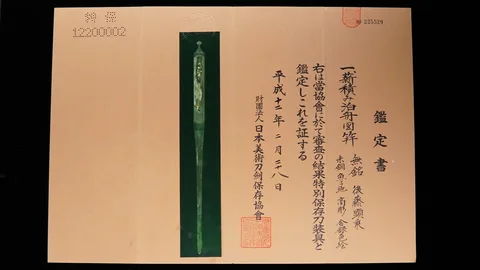 鑑定書
一、薪積み泊舟図笄
無銘 後藤顕乗
赤銅魚子地 高彫 金銀色絵
右は當協會に於て審査の結果特別保存刀装具と
鑑定しこれを証する
平成十二年二月二十八日
財團法人 日本美術刀剣保存協會
保
12200002
225529